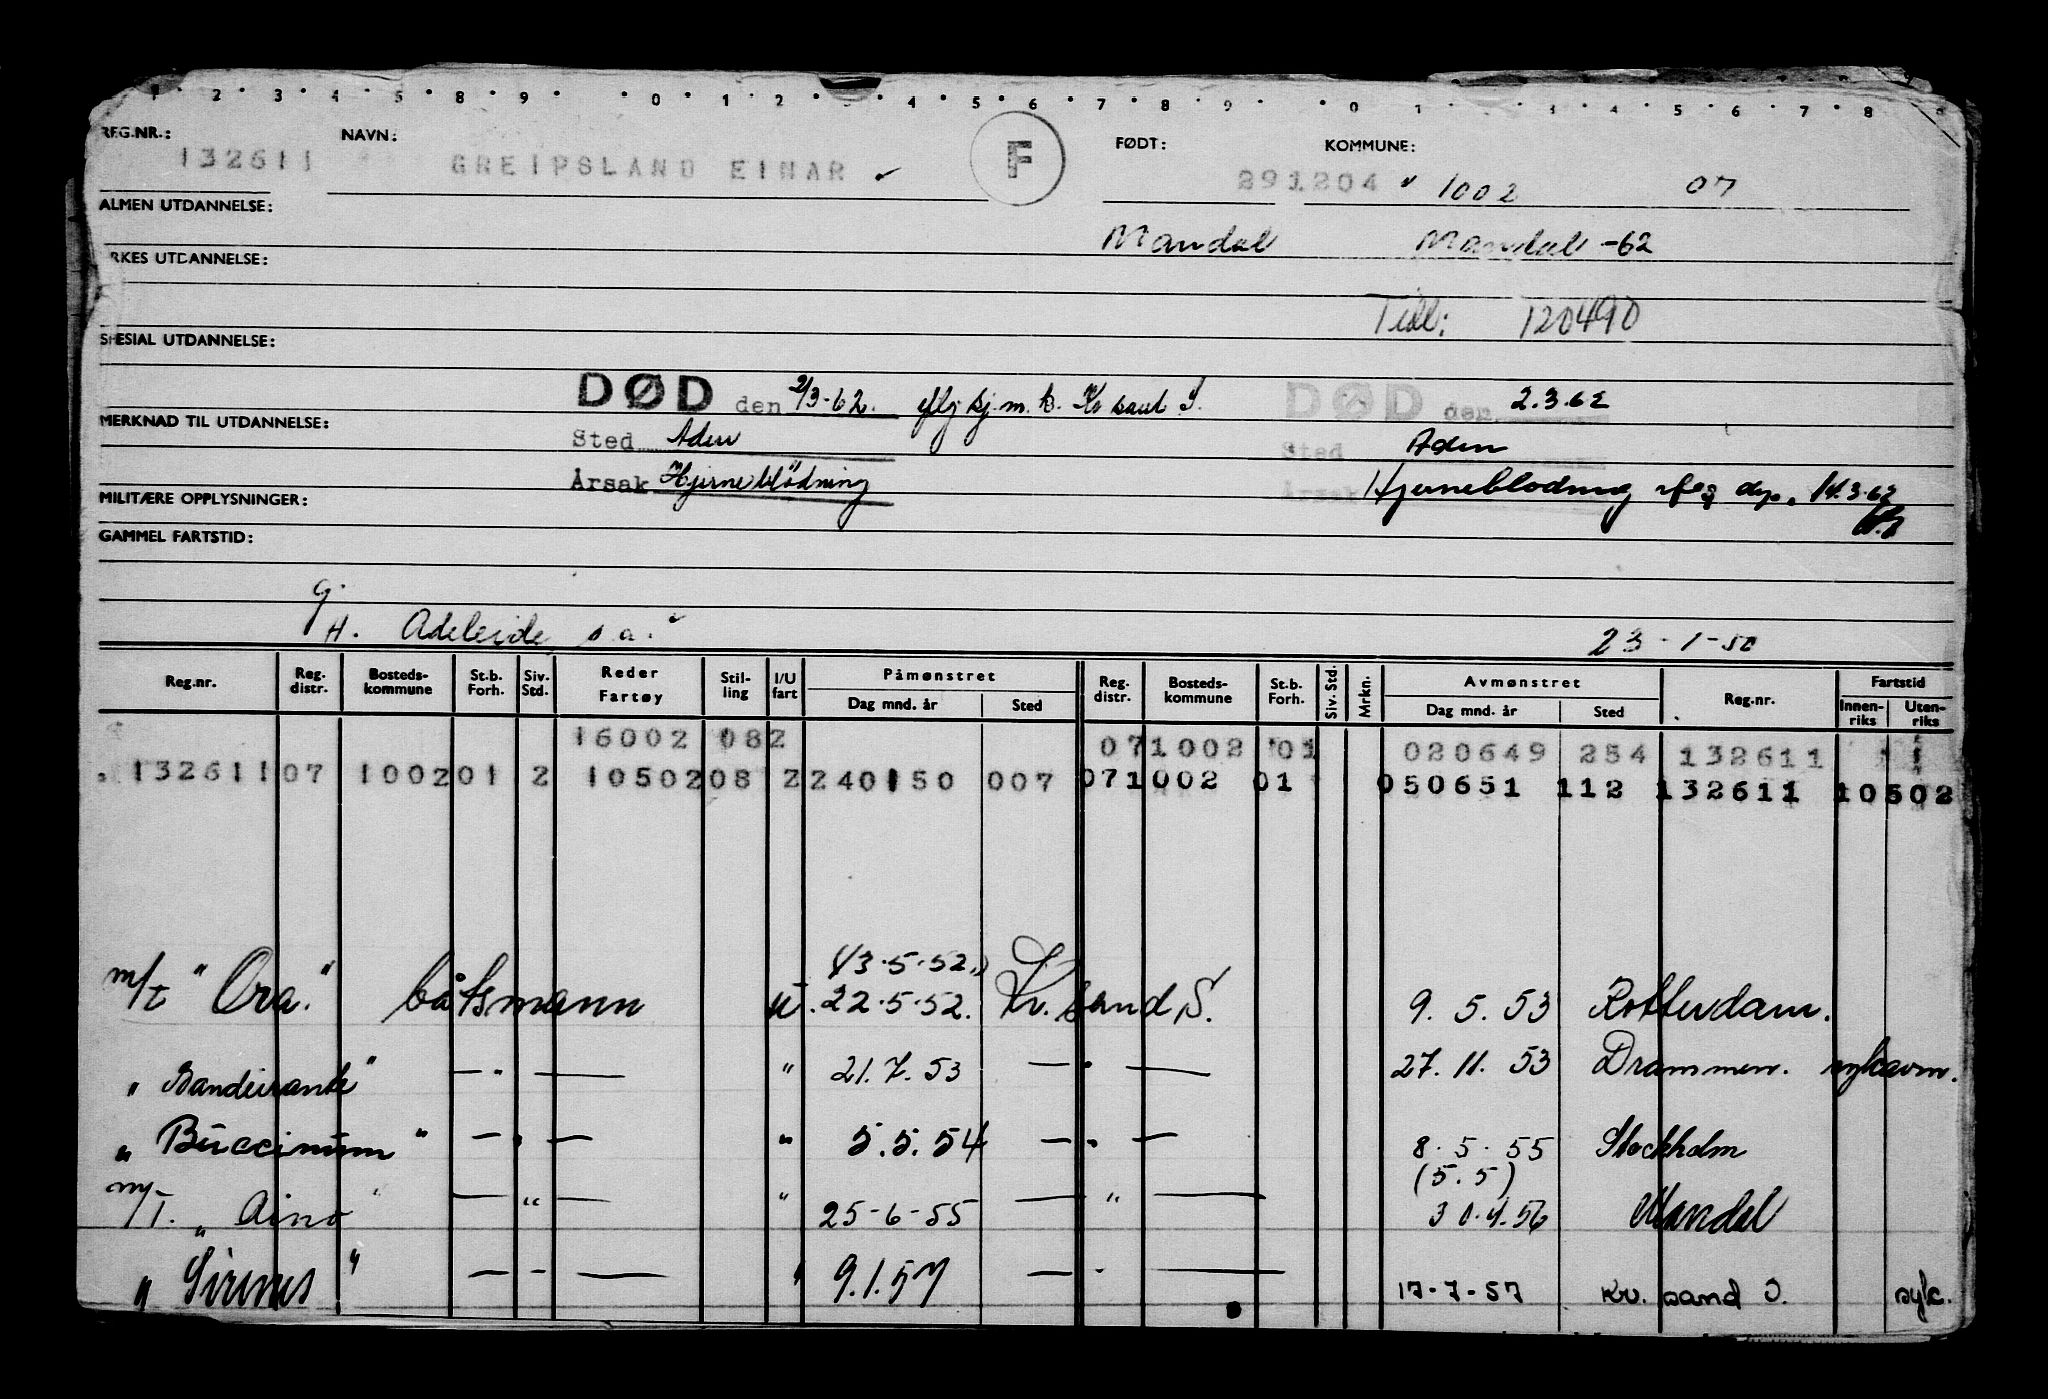 1 2 3 4 5 8 9 0 1 2 3 4 5 6 7 8 9 0 1 3 4 5 6 7 8
REG.NR.: NAVN: F FØDT: KOMMUNE:
132611 GREIPSLAND EINAR ✓ 291204 1002 07
ALMEN UTDANNELSE:
Mandal Mandal -62
YRKES UTDANNELSE:
Tidl: 120490
SPESIAL UTDANNELSE:
DØD den 2/3-62. iflg sj.m.k. Kr sand S. DØD den 2.3.62
MERKNAD TIL UTDANNELSE:
Sted Aden Sted Aden
Årsak Hjerneblödning Årsak Hjerneblødning 14.3.62
MILITÆRE OPPLYSNINGER:
GAMMEL FARTSTID:
H. Adeleide, s.a. 23-1-50
Reg.nr. Reg. distr. Bosteds-kommune St.b. Forh. Siv. Std. Reder Fartøy Stil-ling I/U fart Påmønstret Dag mnd. år Sted Reg. distr. Bosteds-kommune St.b. Forh. Siv. Std. Mrkn. Avmønstret Dag mnd. år Sted Reg.nr. Fartstid Innen-riks Uten-riks
16002 082 071002 01 020649 254 132611
132611 07 1002 01 2 10502 08 2 240150 007 071002 01 050651 112 132611 10502
(13.5.52.)
m/t "Ora." båtsmann u. 22.5.52. Kr. sand S. 9.5.53 Rotterdam.
" Bandeirante" —"— " 21.7.53 —"— 27.11.53 Drammen. sykavm.
" Buccinum" —"— " 5.5.54 —"— 8.5.55 Stockholm
(5.5)
m/T. " Aino " —"— " 25-6-55 —"— 30.4.56 Mandal
" Sirenes" —"— " 9.1.57 —"— 17-7-57 Kr. sand S. syk.